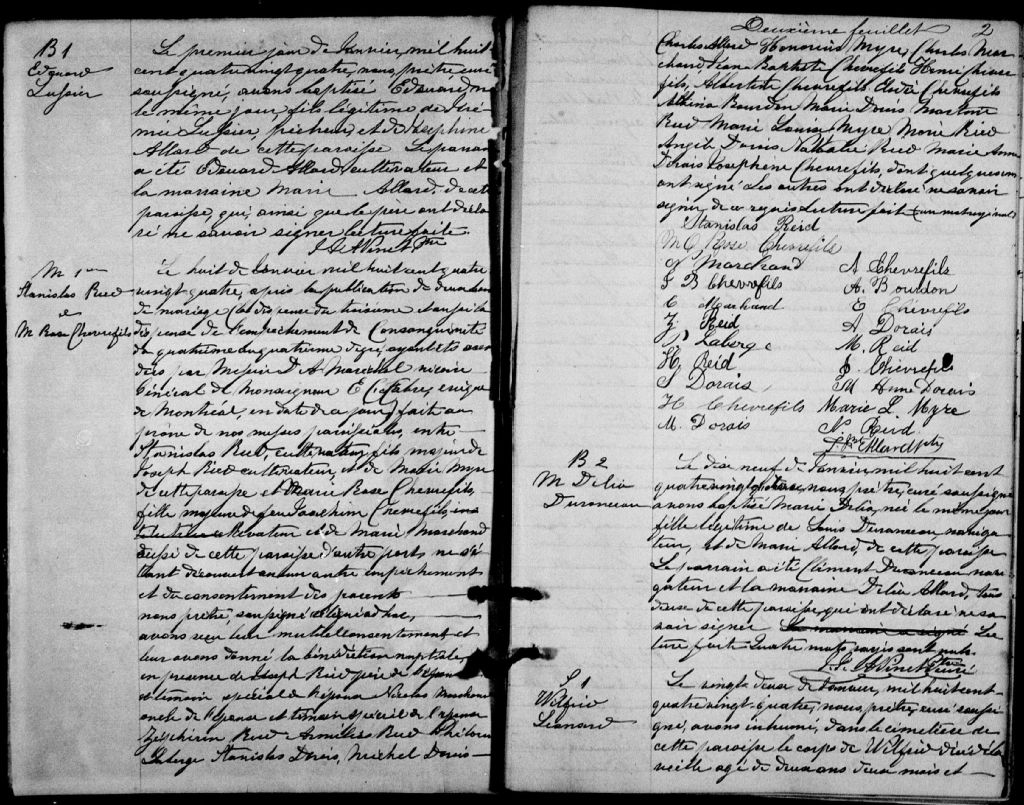 B 1
Edouard
Lussier
Le premier jour de Janvier, mil huit
cent quatre vingt quatre, nous prêtre curé
soussigné, avons baptisé Edouard, né
le même jour, fils légitime de Jéré-
mie Lussier, pêcheur, et de Joséphine
Allard de cette paroisse. Le parrain
a été Edouard Allard, cultivateur et
la marraine Marie Allard, de cette
paroisse, qui, ainsi que le père ont décla-
ré ne savoir signer. Lecture faite
M 1er
Stanislas Reid
&
M Rose Chevrefils
Le huit de Janvier mil huit cent quatre
vingt quatre, après la publication de deux bans
de mariage dispense du troisième et
dispense de l'empêchement de Consanguinité
du quatrième au quatrième degré, ayant été accor-
dées par Messire Maréchal vicaire
Général de Monseigneur E. C. Fabre, évêque
de Montréal, en date de ce jour faite au
prône de nos messes paroissiales, entre
Stanislas Reid, cultivateur, fils, majeur de
Joseph Reid cultivateur, et de Marie Myre
de cette paroisse et Marie Rose Chevrefils,
fille majeure de feu Joachim Chevrefils, en
son vivant cultivateur et de Marie Marchand
aussi de cette paroisse d'autre part, ne s'é-
tant découvert aucun autre empêchement
et du consentement des parents
nous prêtre, soussigné
avons reçu leur mutuel consentement et
leur avons donné la bénédiction nuptiale,
en présence de Joseph Reid père de l'époux
et témoin spécial de l'époux Nicolas Marchand
oncle de l'épouse et témoin spécial de l'épouse
Zéphirin Reid Reid Philorum
Laberge Stanislas Dorais, Michel Dorais
Deuxième feuillet 2
Charles Allard Honorius Myre, Charles Mar-
chand Jean Baptiste Chevrefils Henri
fils, Albertine Chevrefils Chevrefils
Albina Bourdon Marie Dorais
Reid Marie Louise Myre Marie Reid
Angèle Dorais Nathalie Reid Marie Anne
Dorais Josephine Chevrefils, dont quelques uns
ont signé Les autres ont déclaré ne savoir
signer, de ce requis Lecture faite
Stanislas Reid
M C Rose Chevrefils
N Marchand A Chevrefils
J B Chevrefils A. Bourdon
C Marchand E Chevrefils
Z Reid A Dorais
P Laberge M. Reid
H. Reid J. Chevrefils
S Dorais M Anne Dorais
H Chevrefils Marie L. Myre
M. Dorais N. Reid
Allard Ptre
B 2
M Délia
Duranceau
Le dix neuf de Janvier mil huit cent
quatre vingt quatre, nous, prêtre, curé soussigné
avons baptisé Marie Délia, née le même jour
fille légitime de Louis Duranceau, naviga-
teur, et de Marie Allard, de cette paroisse
Le parrain a été Clément Duranceau, navi-
gateur et la marraine Délia Allard, tous
deux de cette paroisse, qui ont déclaré ne sa-
voir signer la marraine a signé Lec-
ture faite Quatre mots rayés sont nuls.
S 1
Wilfrid
Léonard
Le vingt deux de Janvier, mil huit cent
quatre vingt-quatre, nous, prêtre, curé soussi-
gné, avons inhumé, dans le cimetière de
cette paroisse le corps de Wilfrid décédé la
veille agé de deux ans deux mois et